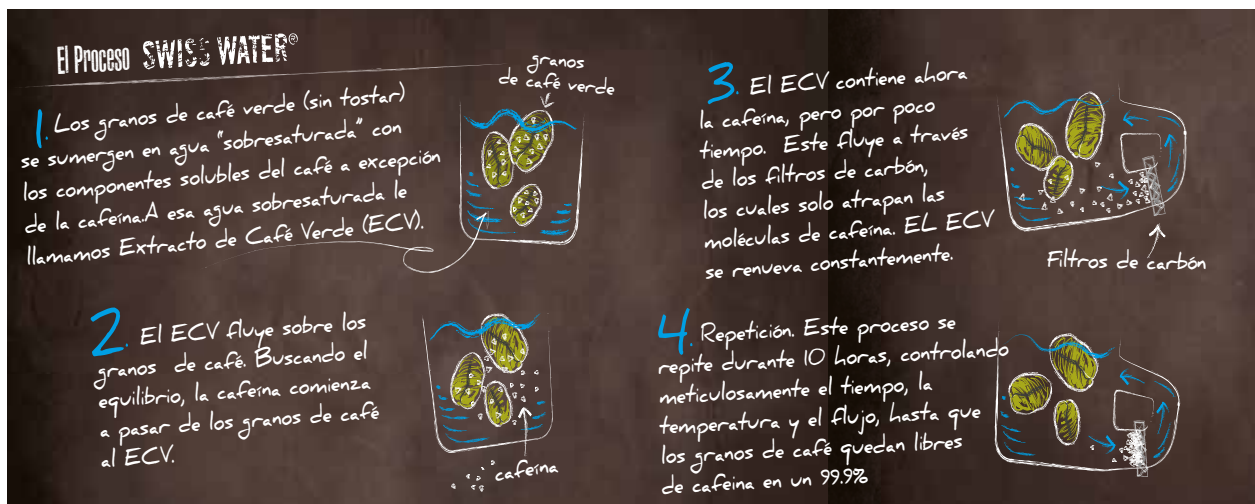 El Proceso SWISS WATER®
1. Los granos de café verde (sin tostar)
se sumergen en agua "sobresaturada" con
los componentes solubles del café a excepción
de la cafeína.A esa agua sobresaturada le
llamamos Extracto de Café Verde (ECV).
granos
de café verde
2. El ECV fluye sobre los
granos de café. Buscando el
equilibrio, la cafeína comienza
a pasar de los granos de café
al ECV.
cafeína
3. El ECV contiene ahora
la cafeína, pero por poco
tiempo. Este fluye a través
de los filtros de carbón,
los cuales solo atrapan las
moléculas de cafeína. EL ECV
se renueva constantemente.
Filtros de carbón
4. Repetición. Este proceso se
repite durante 10 horas, controlando
meticulosamente el tiempo, la
temperatura y el flujo, hasta que
los granos de café quedan libres
de cafeina en un 99.9%